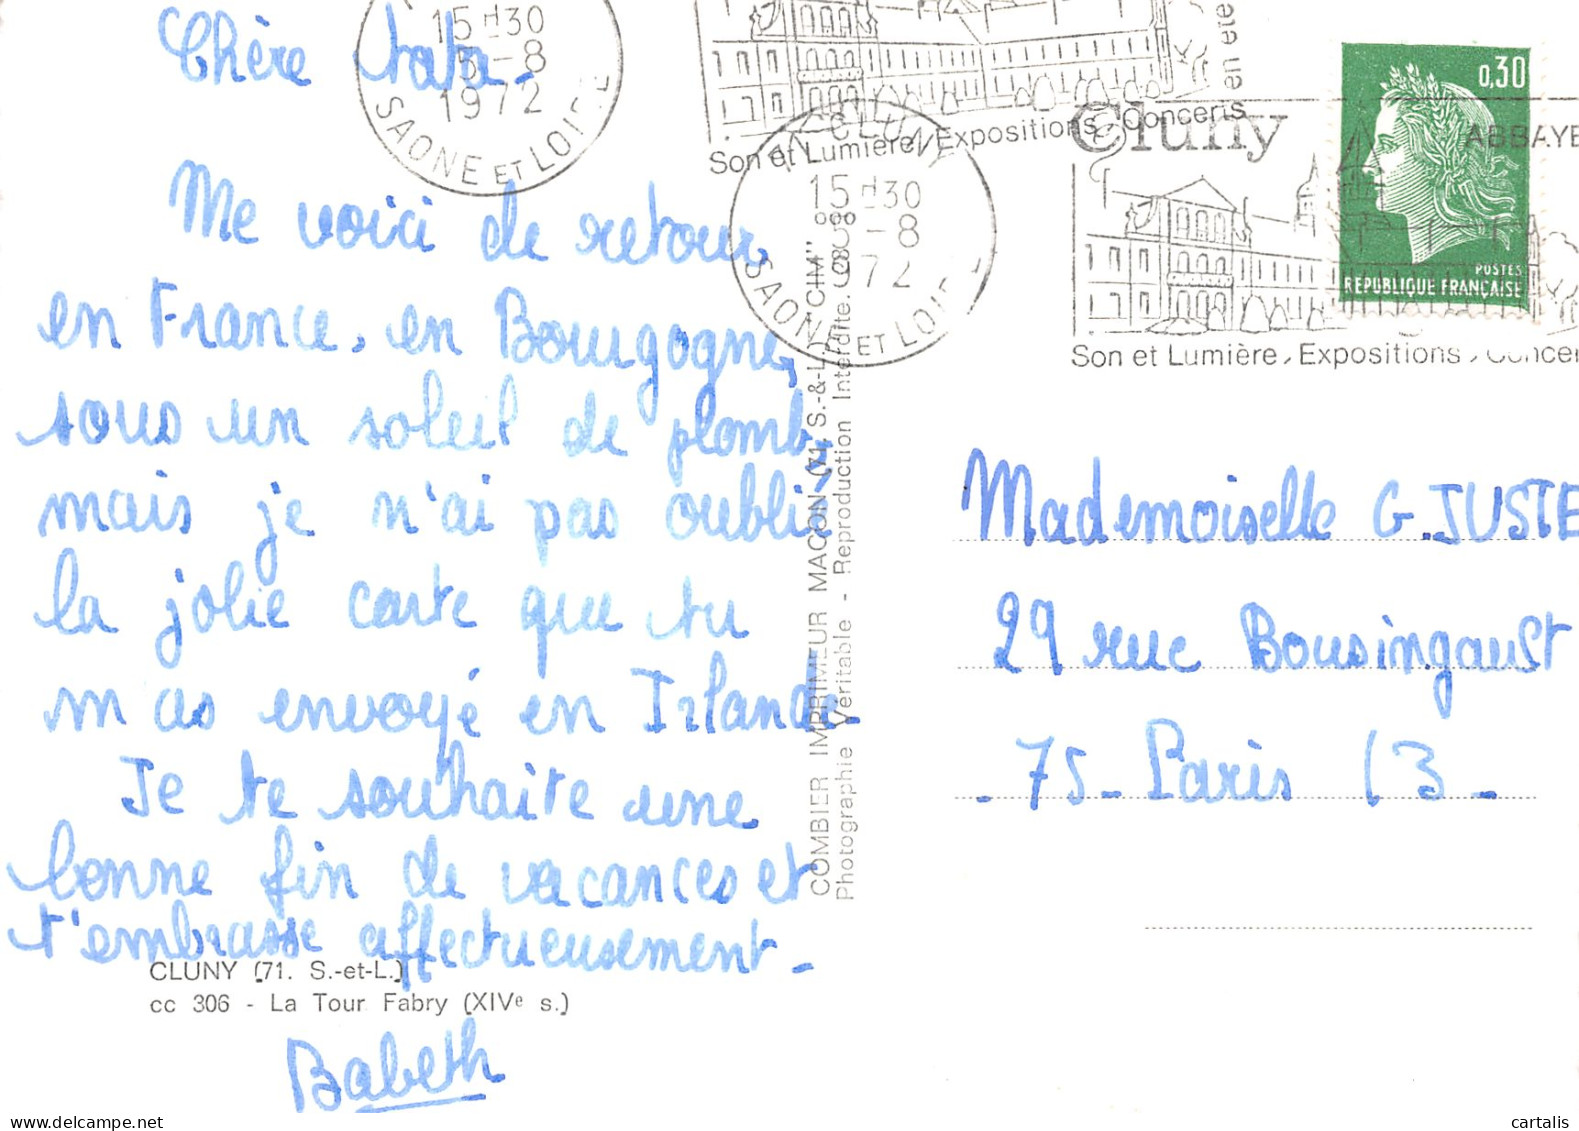 Chère tata.
Me voici de retour
en France, en Bourgogne,
sous un soleil de plomb,
mais je n'ai pas oublié
la jolie carte que tu
m as envoyé en Irlande.
Je te souhaite une
bonne fin de vacances et
t'embrasse affectueusement.
Babeth
CLUNY (71. S.-et-L.)
cc 306 - La Tour Fabry (XIVe s.)
15 H 30
5-8
1972
SAONE ET LOIRE
Son et Lumière, Expositions, Concerts
en été
CLUNY
15 H 30
8-8
1972
SAONE ET LOIRE
Cluny
ABBAYE
Son et Lumière, Expositions, Concer
0,30
POSTES
REPUBLIQUE FRANÇAISE
COMBIER IMPRIMEUR MACON (71. S.-&-L.) "CIM"
Photographie Véritable - Reproduction Interdite.
Mademoiselle G. JUSTE
29 rue Bousingault
- 75 - Paris 13 -
cartalis
www.delcampe.net